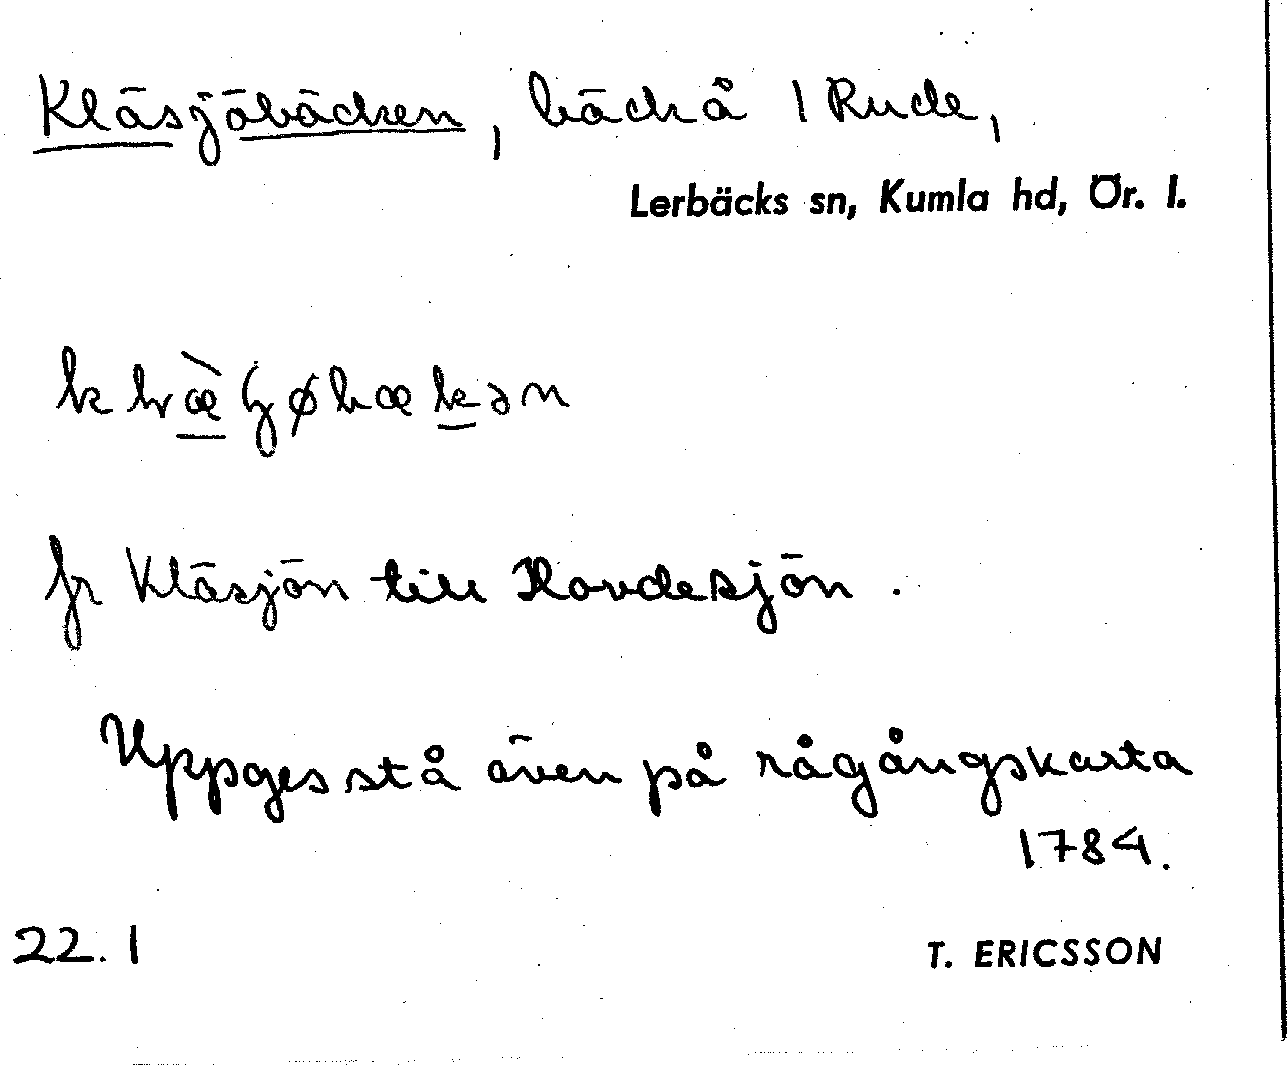 Kläsjöbäcken, bäck å 1 Rude,
Lerbäcks sn, Kumla hd, Ör. l.
fr Kläsjön till Hovdesjön.
Uppges stå även på rågångskarta
1784.
22. 1
T. ERICSSON